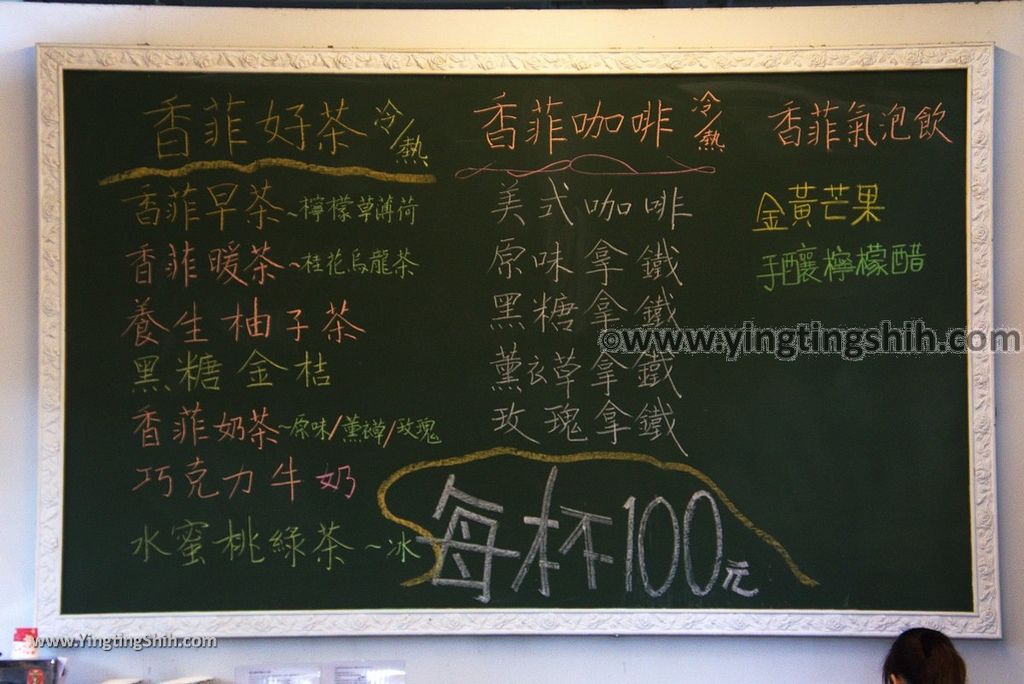 香菲好茶 冷/熱
香菲早茶~檸檬草薄荷
香菲暖茶~桂花烏龍茶
養生柚子茶
黑糖金桔
香菲奶茶~原味/薰衣草/玫瑰
巧克力牛奶
水蜜桃綠茶~冰
香菲咖啡 冷/熱
美式咖啡
原味拿鐵
黑糖拿鐵
薰衣草拿鐵
玫瑰拿鐵
每杯100元
香菲氣泡飲
金黃芒果
手釀檸檬醋
©www.yingtingshih.com
www.YingtingShih.com